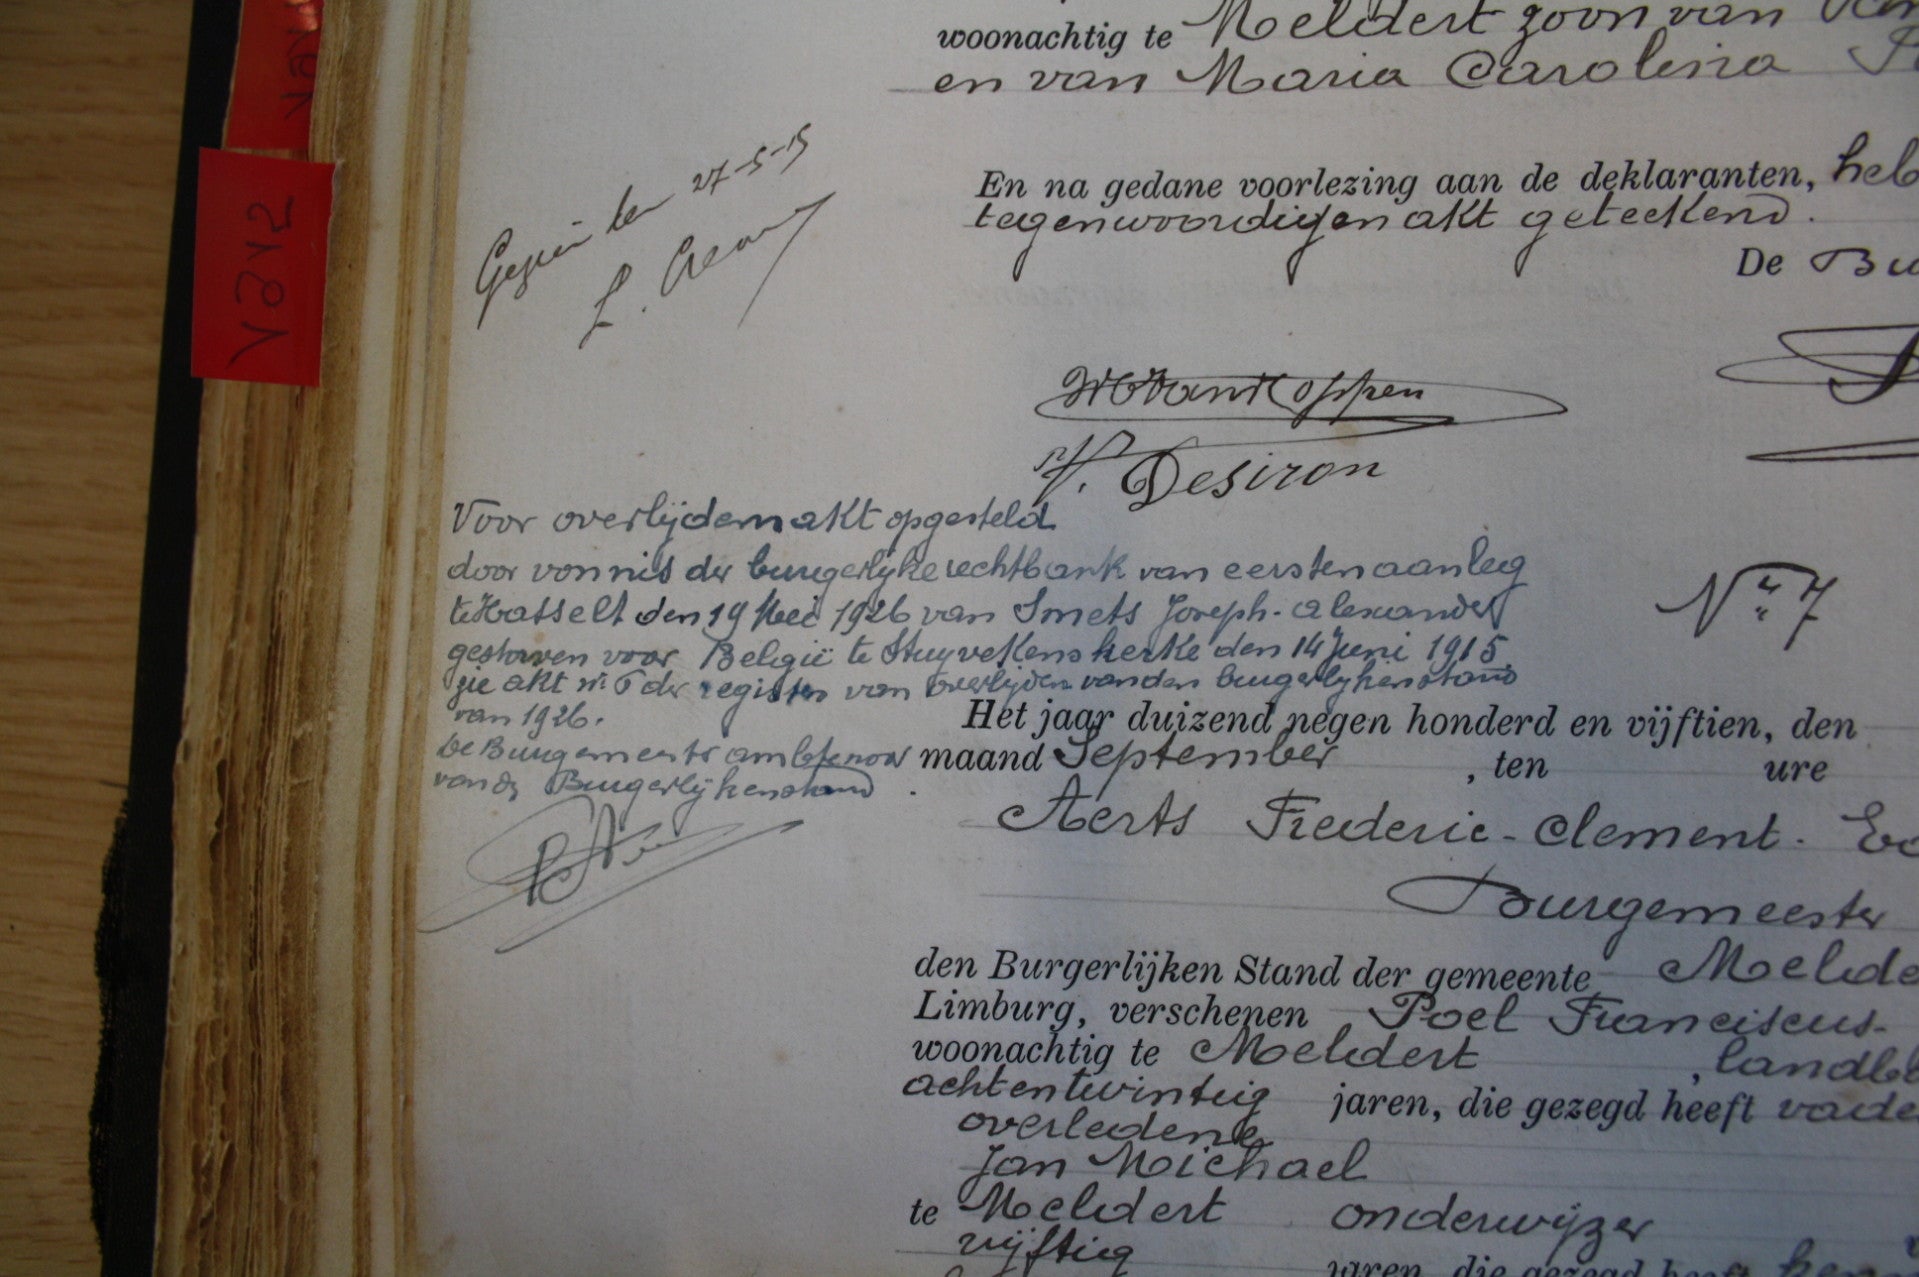 woonachtig te Meldert zoon van
en van Maria Carolina
Gezien den 27-5-15
L.
En na gedane voorlezing aan de deklaranten, heb
tegenwoordigen akt geteekend.
De Bu
VanKoppen
Desiron
Voor overlijdensakt opgesteld
door vonnis der burgerlijke rechtbank van eersten aanleg
te Hasselt den 19 Mei 1926 van Smets Joseph-Alexander
gestorven voor België te Stuyvekenskerke den 14 Juni 1915
zie akt nr 6 der registers van overlijden van den burgerlijkenstand
van 1926.
De Burgemeester ambtenaar
van den Burgerlijkenstand.
Nr 7
Het jaar duizend negen honderd en vijftien, den
maand September, ten ure
Aerts Frederic-Clement.
Burgemeester
den Burgerlijken Stand der gemeente Melde
Limburg, verschenen Poel Franciscus-
woonachtig te Meldert, landb
achtentwintig jaren, die gezegd heeft vade
overledene
Jan Michael
te Meldert onderwijzer
vijftig jaren, die gezegd heeft